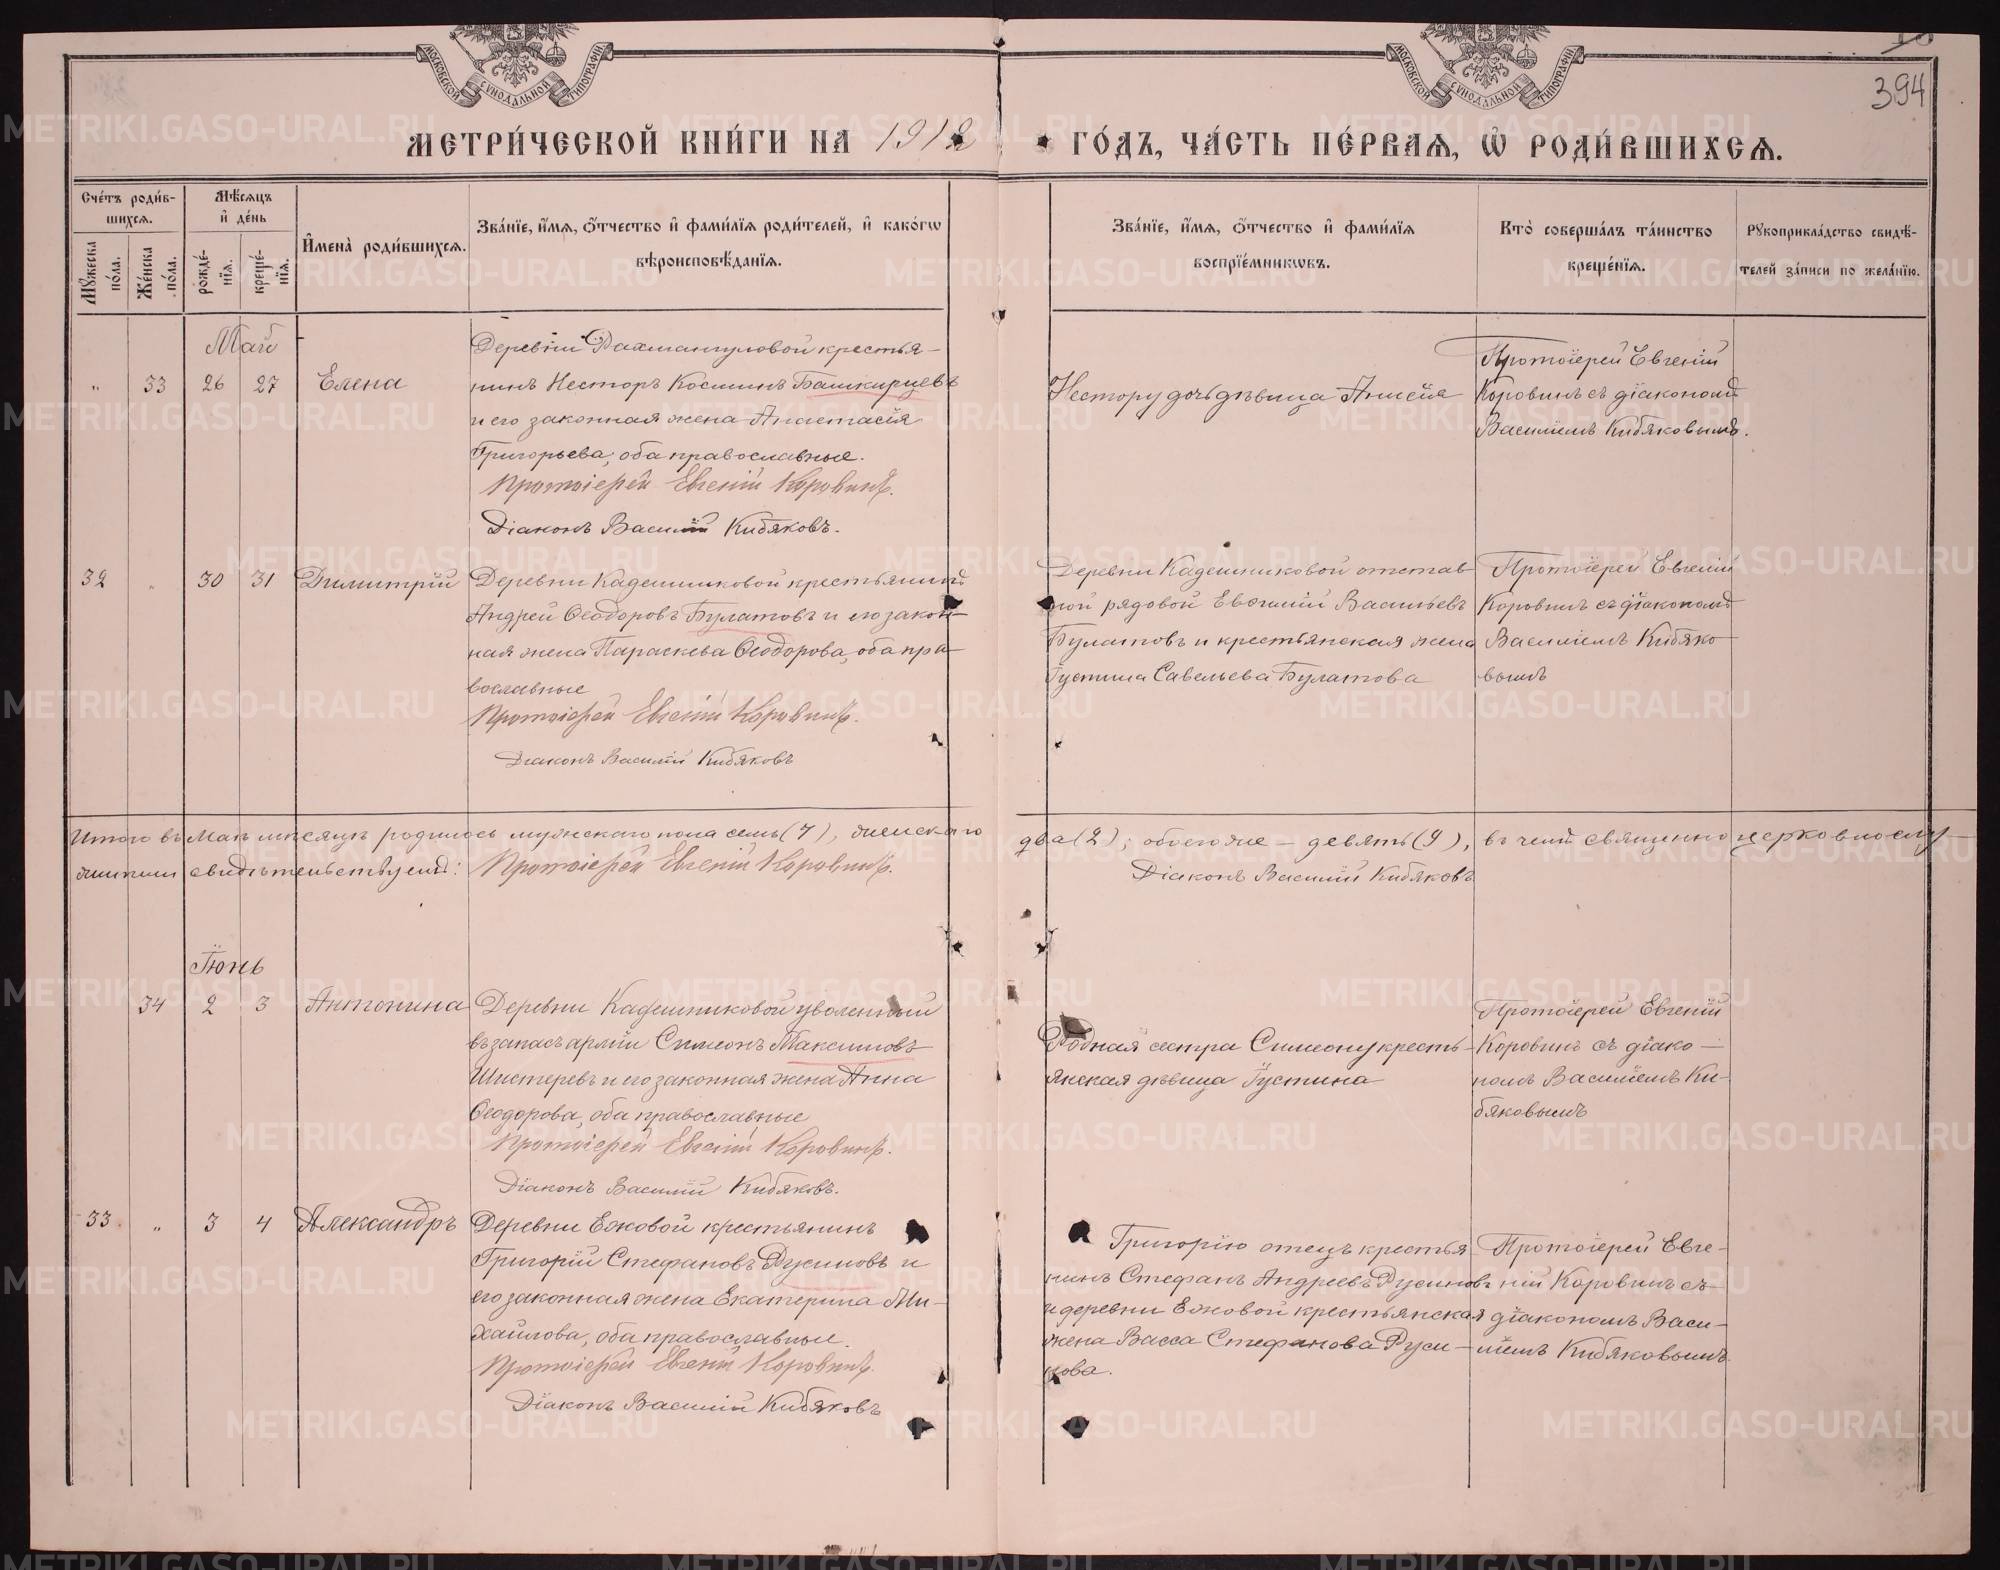 МОСКОВСКОЙ СѴНОДАЛЬНОЙ ТИПОГРАФІИ
МОСКОВСКОЙ СѴНОДАЛЬНОЙ ТИПОГРАФІИ
394
МЕТРИ́ЧЕСКОЙ КНИ́ГИ НА 1912 ГО́ДЪ, ЧА́СТЬ ПЕ́РВАѦ, Ѡ҆ РОДИ́ВШИХСѦ.
Сче́тъ роди́в-
шихсѧ.
Мꙋ́жеска по́ла.
Же́нска по́ла.
Мѣ́сѧцъ
и҆ де́нь
рожде́-нїѧ.
креще́-нїѧ.
И҆мена̀ роди́вшихсѧ.
Зва́нїе, и҆́мѧ, ѻ҆́тчество и҆ фами́лїѧ роди́телей, и҆ како́гѡ
вѣроисповѣ́данїѧ.
Зва́нїе, и҆́мѧ, ѻ҆́тчество и҆ фами́лїѧ
воспрїе́мникѡвъ.
Кто̀ соверша́лъ та́инство
креще́нїѧ.
Рꙋкоприкла́дство свидѣ́-
телей за́писи по жела́нїю.
Май
„ 33 26 27 Елена
Деревни Рахмангуловой крестья-
нинъ Несторъ Космин Башкирцевъ
и его законная жена Анастасія
Григорьева, оба православные.
Протоіерей Евгеній Коровинъ.
Діаконъ Василій Кибяковъ.
Нестору дочь дѣвица Анисія
Протоіерей Евгеній
Коровинъ съ діакономъ
Василіемъ Кибяковымъ.
32 „ 30 31 Димитрій
Деревни Кадешниковой крестьянинъ
Андрей Ѳеодоровъ Булатовъ и его закон-
ная жена Параскева Ѳеодорова, оба пра-
вославные
Протоіерей Евгеній Коровинъ.
Діаконъ Василій Кибяковъ
Деревни Кадешниковой отстав-
ной рядовой Евѳимій Васильевъ
Булатовъ и крестьянская жена
Іустина Савельева Булатова
Протоіерей Евгеній
Коровинъ съ діакономъ
Василіемъ Кибяко
вымъ
Итого въ Маѣ мѣсяцѣ родилось мужскаго пола семь (7), женскаго два (2); обоего же – девять (9), въ чемъ священно церковнослу-
жители свидѣтельствуемъ: Протоіерей Евгеній Коровинъ. Діаконъ Василій Кибяковъ
Іюнь
34 2 3 Антонина
Деревни Кадешниковой уволенный
въ запасъ арміи Симеонъ Максимовъ
Шистеревъ и его законная жена Анна
Ѳеодорова, оба православные
Протоіерей Евгеній Коровинъ.
Діаконъ Василій Кибяковъ.
Родная сестра Симеону кресть-
янская дѣвица Іустина
Протоіерей Евгеній
Коровинъ съ діако-
номъ Василіемъ Ки-
бяковымъ
33 „ 3 4 Александръ
Деревни Ежовой крестьянинъ
Григорій Стефановъ Русиновъ и
его законная жена Екатерина Ми-
хайлова, оба православные.
Протоіерей Евгеній Коровинъ.
Діаконъ Василій Кибяковъ
Григорію отецъ крестья
нинъ Стефанъ Андреевъ Русиновъ
и деревни Ежовой крестьянская
жена Васса Стефанова Руси-
нова.
Протоіерей Евге-
ній Коровинъ съ
діакономъ Васи-
ліемъ Кибяковымъ